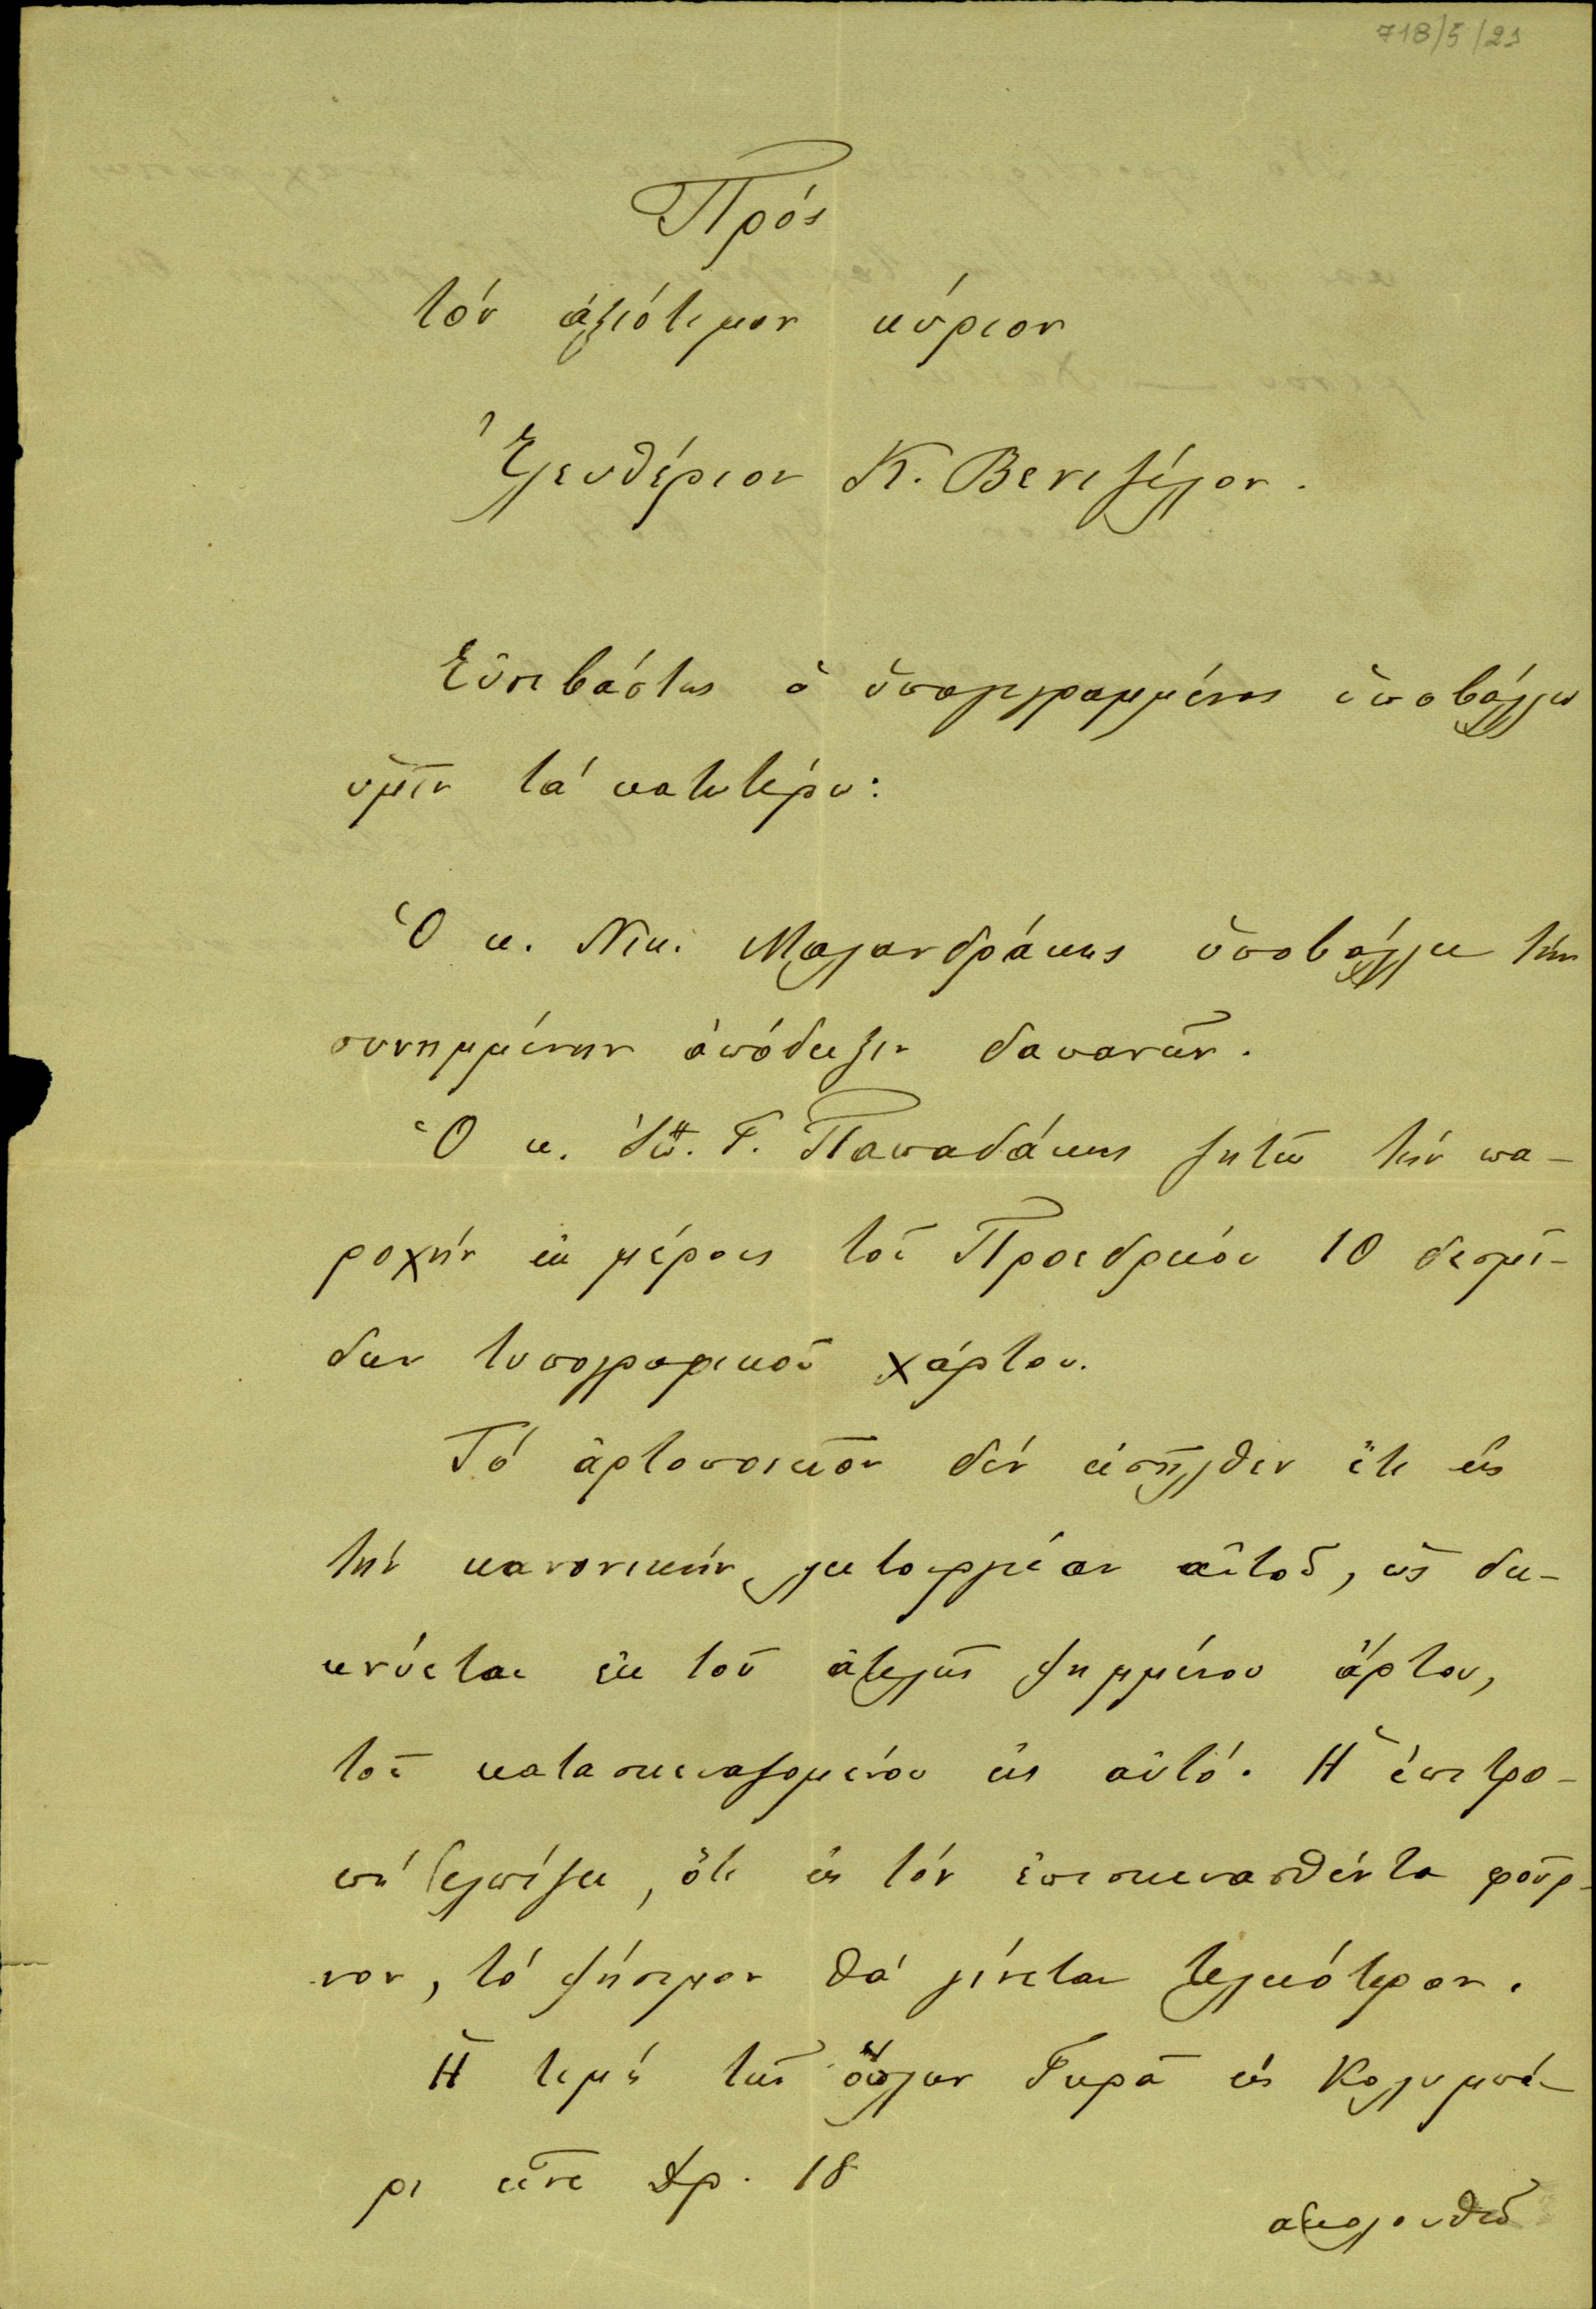 718/5/21
Πρός
τόν ἀξιότιμον κύριον
Ἐλευθέριον Κ. Βενιζέλον.
Εὐσεβάστως ὁ ὑπογεγραμμένος ὑποβάλλω
ὑμῖν τά κατωτέρω:
Ὁ κ. Νικ. Μαλανδράκης ὑποβάλλει τήν
συνημμένην ἀπόδειξιν δαπανῶν.
Ὁ κ. Γ. Παπαδάκης ζητεῖ τήν πα-
ροχήν ἐκ μέρους τοῦ Προεδρείου 10 δεσμί-
δων τυπογραφικοῦ χάρτου.
Τό ἀρτοποιεῖον δέν εἰσῆλθεν ἔτι εἰς
τήν κανονικήν λειτουργίαν αὐτοῦ, ὡς δει-
κνύεται ἐκ τοῦ ἀτελῶς ψημμένου ἄρτου,
τοῦ κατασκευαζομένου εἰς αὐτό. Ἡ ἐπιτρο-
πή ἐλπίζει, ὅτι εἰς τόν ἐπισκευασθέντα φοῦρ-
νον, τό ψήσιμον θά γίνεται τελειότερον.
Ἡ τιμή τῶν ὅπλων Γκρᾶ εἰς Κολυμπά-
ρι εἶνε Δρ. 18
ἀκολουθεῖ